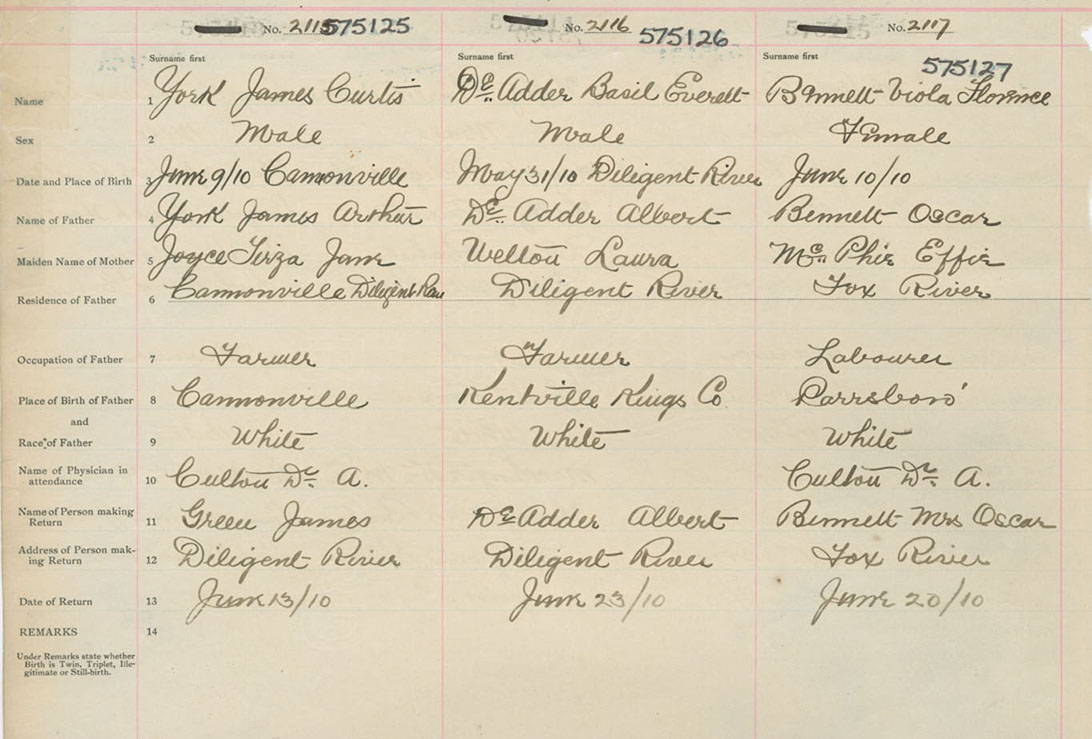 No. 2115 575125 No. 2116 575126 No. 2117 575127
Surname first Surname first Surname first
Name 1 York James Curtis De Adder Basil Everett Bennett Viola Florence
Sex 2 Male Male Female
Date and Place of Birth 3 June 9/10 Cannonville May 31/10 Diligent River June 10/10
Name of Father 4 York James Arthur De Adder Albert Bennett Oscar
Maiden Name of Mother 5 Joyce Tirza Jane Welton Laura Mc Phie Effie
Residence of Father 6 Cannonville Diligent Diligent River Fox River
Occupation of Father 7 Farmer Farmer Labourer
Place of Birth of Father 8 Cannonville Kentville Kings Co. Parrsboro'
and
Race of Father 9 White White White
Name of Physician in
attendance 10 Culton Dr. A. Culton Dr. A.
Name of Person making
Return 11 Green James De Adder Albert Bennett Mrs Oscar
Address of Person mak-
ing Return 12 Diligent River Diligent River Fox River
Date of Return 13 June 13/10 June 23/10 June 20/10
REMARKS 14
Under Remarks state whether
Birth is Twin, Triplet, Ille-
gitimate or Still-birth.